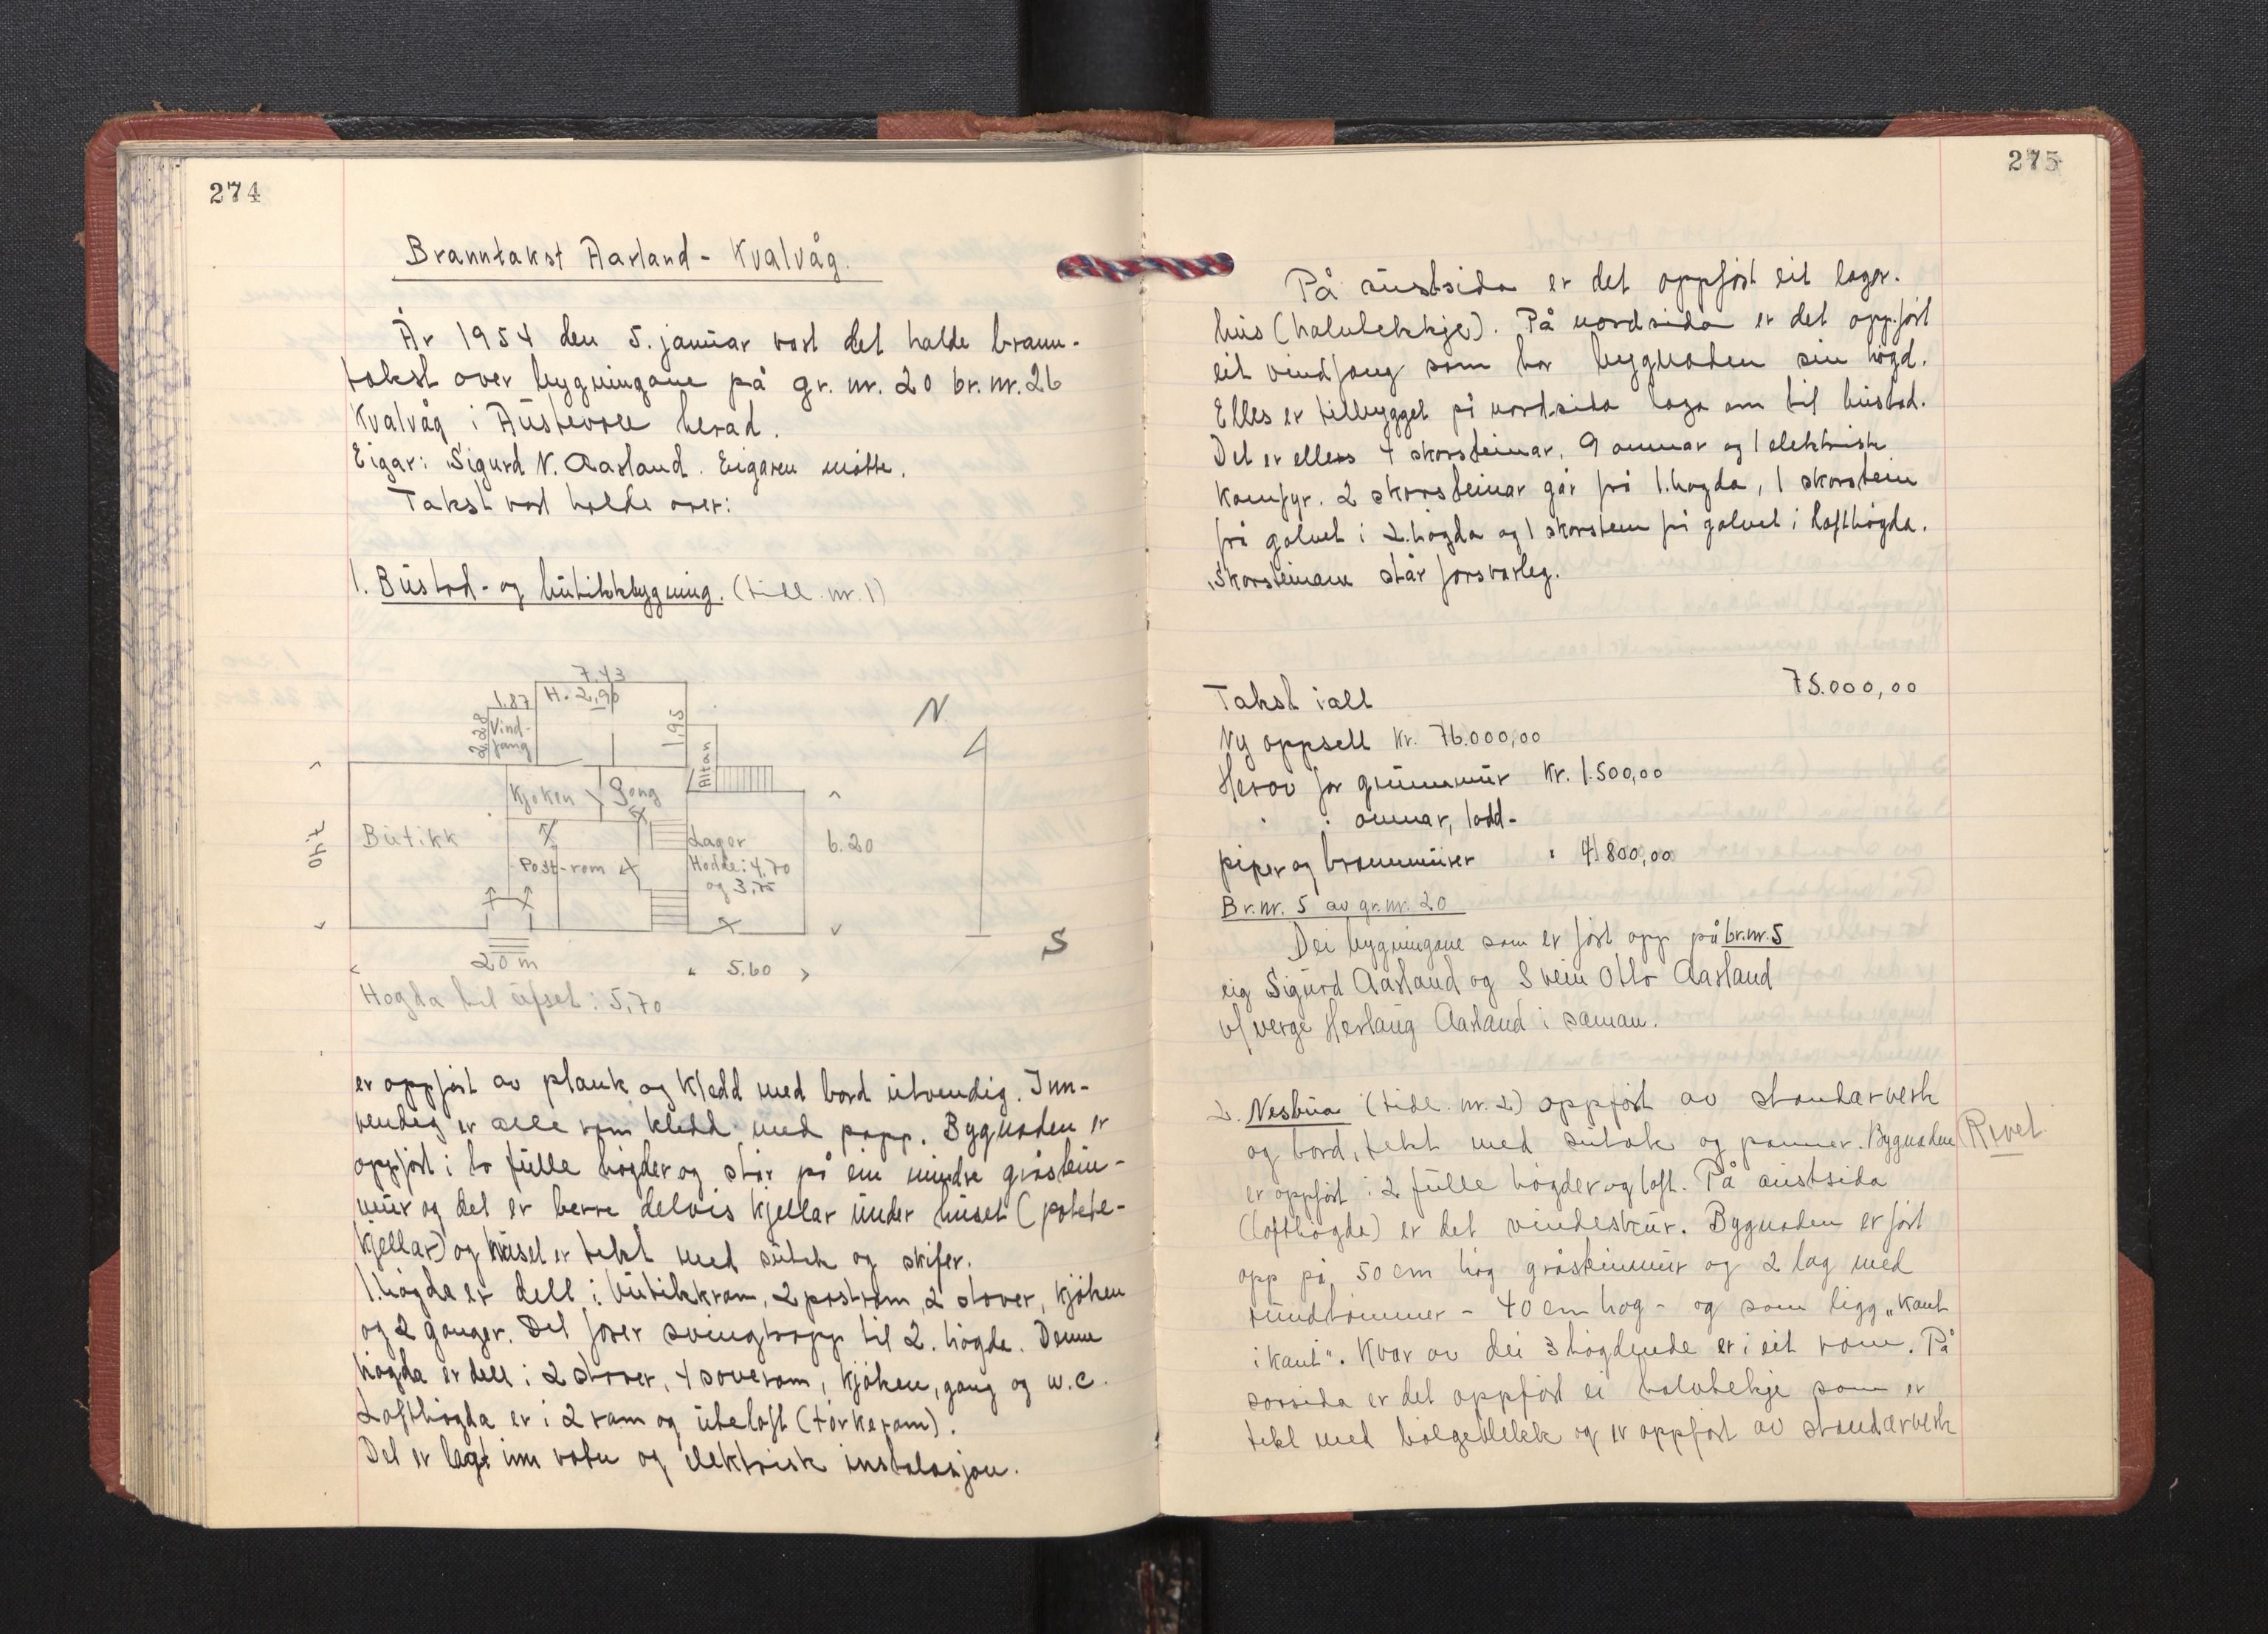 274
Branntakst Aarland - Kvalvåg.
År 1954 den 5. januar vart det halde brann-
takst over bygningane på gr. nr. 20 br. nr. 26
Kvalvåg i Austevoll herad.
Eigar: Sigurd N. Aarland. Eigaren møtte.
Takst vart halde over:
1. Bustad- og butikkbygning. (tidl. nr. 1)
7.43
1.87 H. 2,90
2,28 Vind-
fang
1,95
Altan
N
Kjøken Gong
Butikk
7,40
Lager
Hødde: 4,70
og 3,75
6.20
Post-rom
S
20 m
5.60
Høgda til ufsel: 5,70
er oppført av plank og kledd med bord utvendig. Inn-
vendig er alle rom kledd med papp. Bygnaden er
oppført i to fulle høgder og står på ein mindre gråstein-
mur og det er berre delvis kjellar under huset (potete-
kjellar) og huset er tekt med sutak og skifer.
1. høgda er delt i butikkrom, 2 postrom, 2 stover, kjøken
og 2 ganger. Det fører svingtrapp til 2. høgda. Denne
høgda er delt i 2 stover, 4 soverom, kjøken, gang og w.c.
Lofthøgda er i 2 rom og uteloft (tørkerom).
Det er lagt inn vatn og elektrisk instalasjon.
275
På austsida er det oppført eit lager-
hus (halvtekkje). På nordsida er det oppført
eit vindfang som har bygnaden sin høgd.
Elles er tilbygget på nordsida laga om til bustad.
Det er ellers 4 skorsteinar, 9 omnar og 1 elektrisk
komfyr. 2 skorsteinar går frå 1. høgda, 1 skorstein
frå golvet i 2. høgda og 1 skorstein frå golvet i lofthøgda.
Skorsteinane står forsvarleg.
Takst ialt 75.000,00
Ny oppsett kr. 76.000,00
Herav for grunnmur kr. 1.500,00
" " omnar, lodd-
piper og brannmurer " 4.800,00
Br. nr. 5 av gr. nr. 20
Dei bygningane som er ført opp på br. nr. 5
eig Sigurd Aarland og Svein Otto Aarland
v/ verge Herlaug Aarland i saman.
2. Nesbua (tidl. nr. 2) oppført av standarverk
og bord, tekt med sutak og panner. Bygnaden
Rivet
er oppført i 2 fulle høgder og loft. På austsida
(lofthøgda) er det vindeskur. Bygnaden er ført
opp på 50 cm høg gråsteinmur og 2 lag med
rundtømmer - 40 cm høg - og som ligg „kant
i kant". Kvar av dei 3 høgdende er i eit rom. På
sørsida er det oppført ei halvtekje som er
tekt med bølgeblekk og er oppført av standarverk